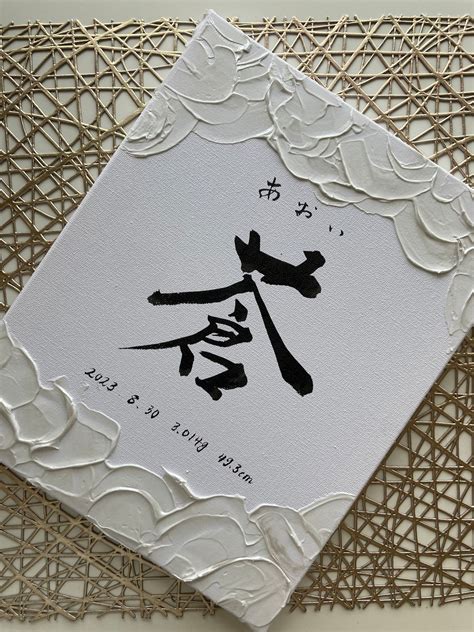 あおい
蒼
2023 8.30 3.014g 49.3cm